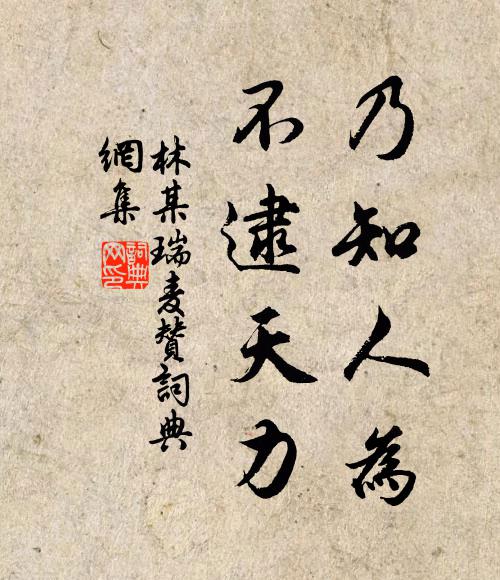 乃知人為
不逮天力
林某瑞麦贊詞典
網集
詞典
网印